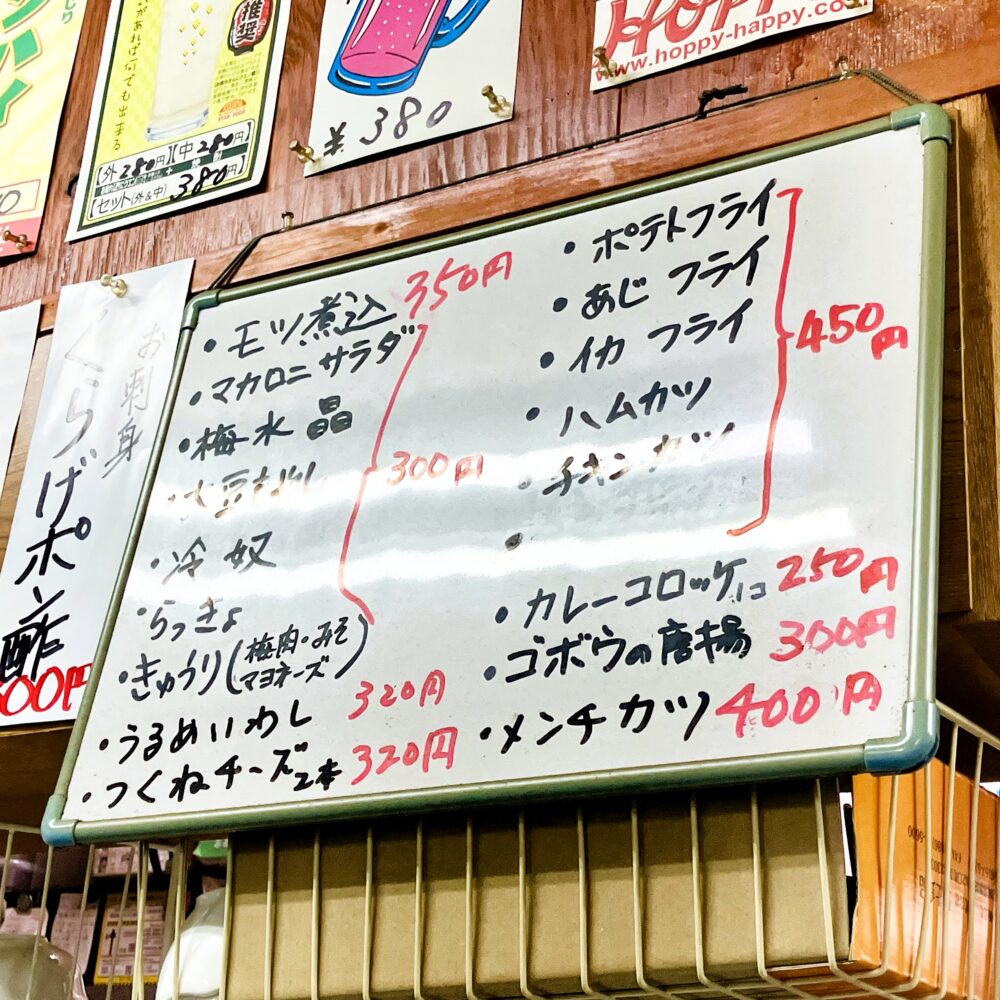 があれば何でも出来る
推奨
【外280円】【中280円】
【セット(外&中)380円】
¥380
HOPPY
www.hoppy-happy.co
お刺身
くらげポン酢
500円
・モツ煮込 350円
・マカロニサラダ
・梅水晶
・冷奴
・らっきょ
・きゅうり(梅肉・みそ
マヨネーズ)
300円
・うるめいわし 320円
・つくねチーズ2本 320円
・ポテトフライ
・あじフライ
・イカフライ
・ハムカツ
・チキンカツ
450円
・
・カレーコロッケ1コ 250円
・ゴボウの唐揚 300円
・メンチカツ 400円